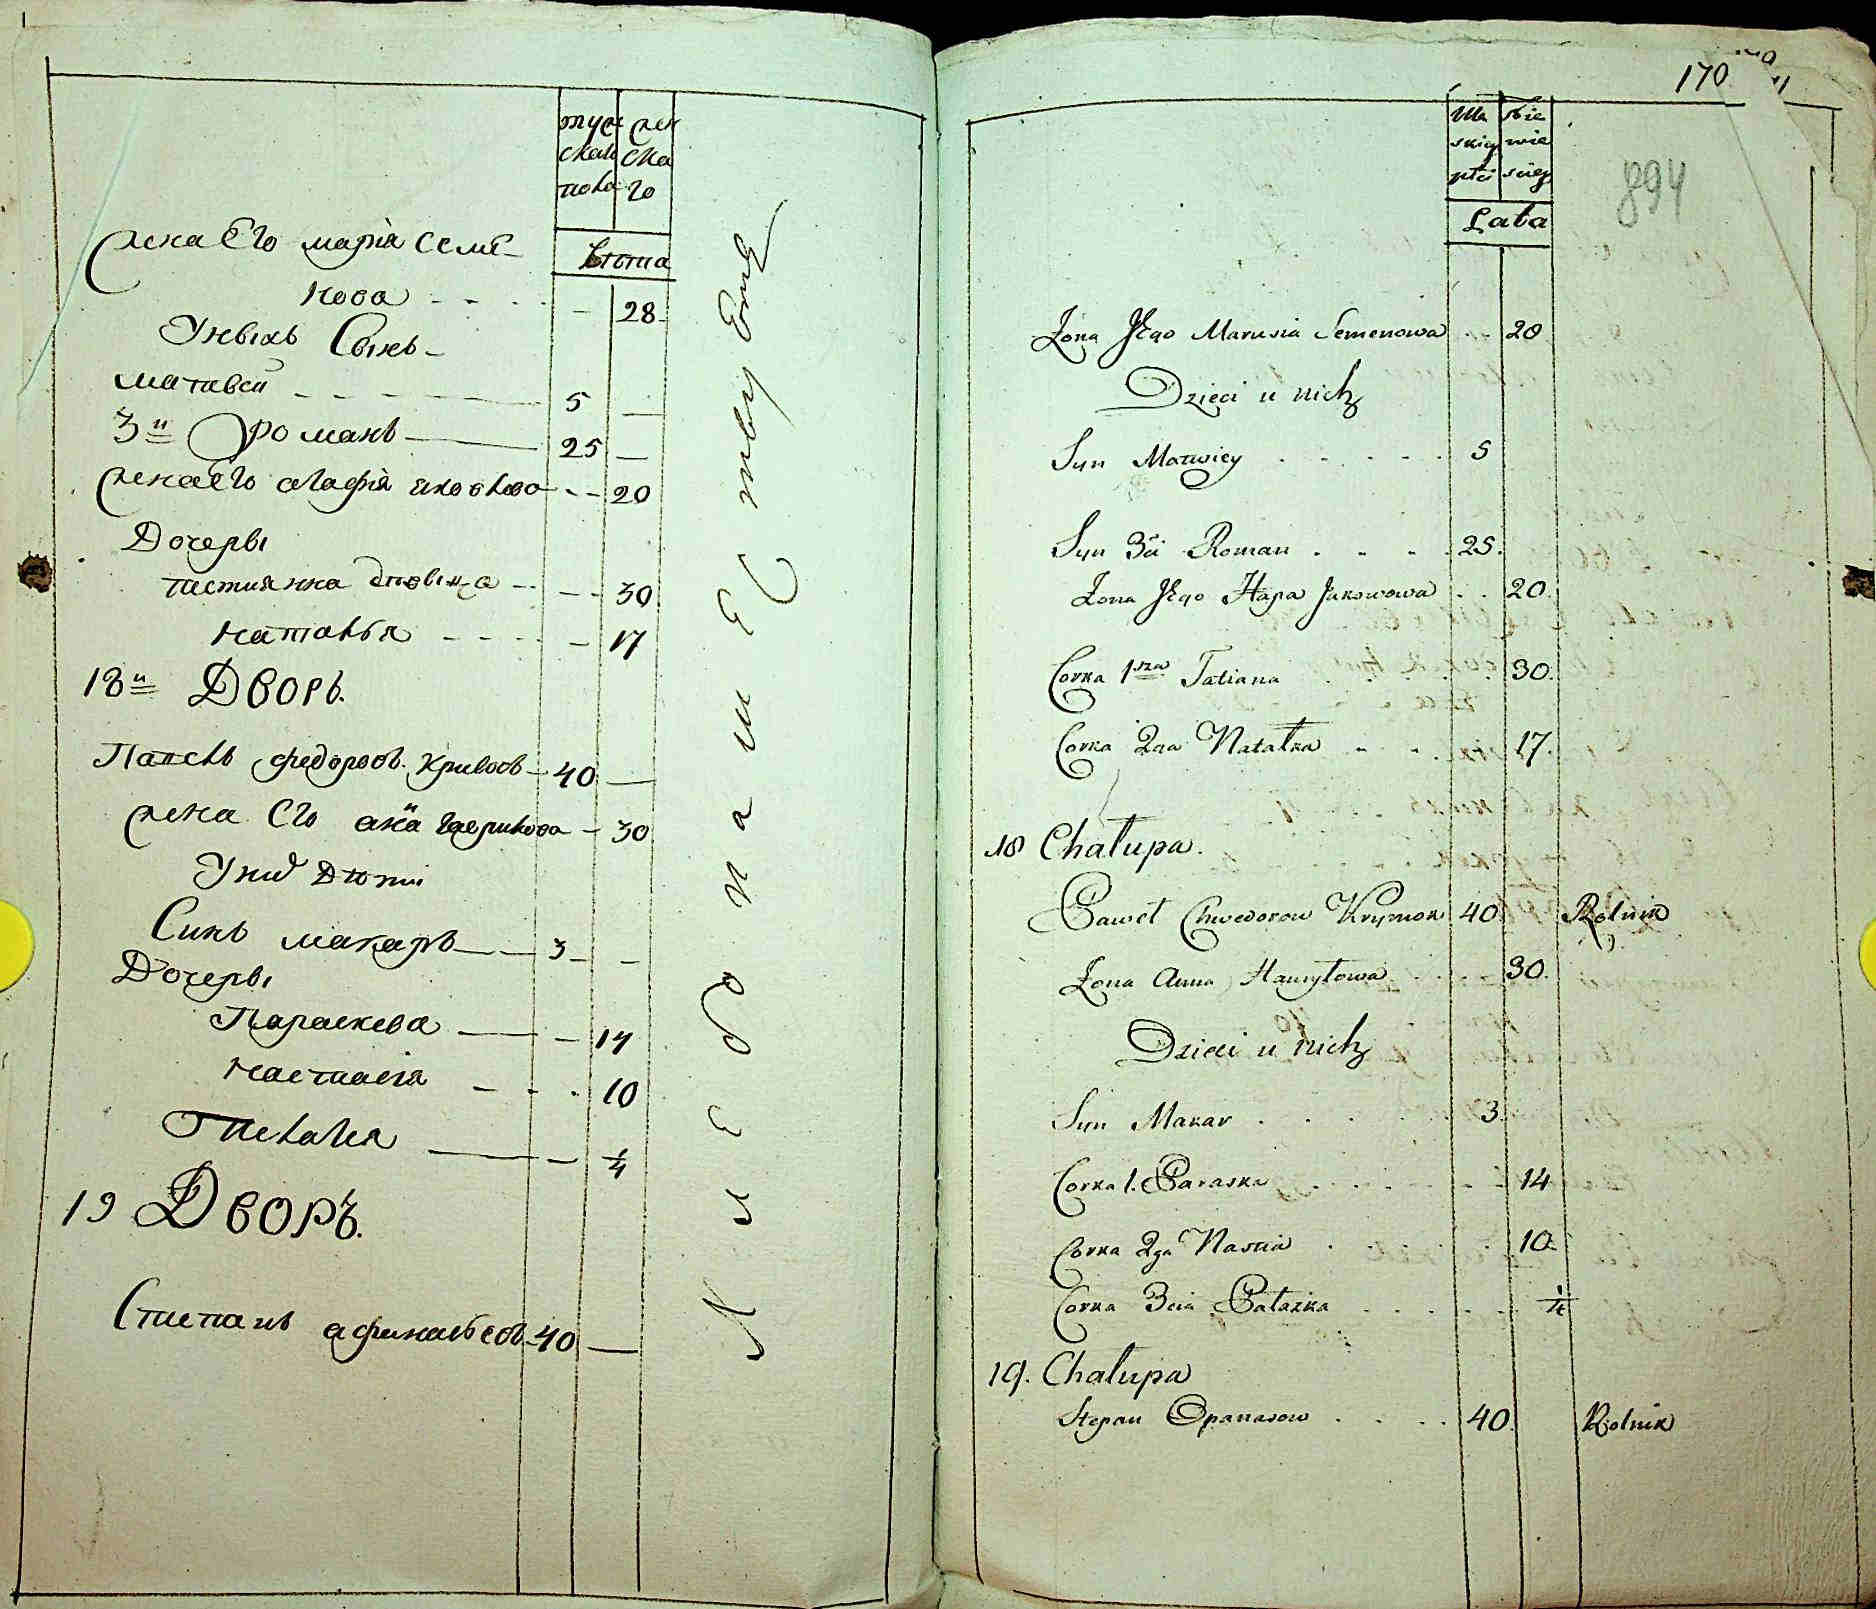 муж
скаго
пола
жен
ска
го
Лѣта
жена Его марія семе-
нова - - - - 28
У нвыхъ Сынъ
матвей - - - 5
3й Романъ 25
жена Его агафія яковлева - - 20
Дочеры
татиянка вдовица - - 30
наталья - - - 17
18й Дворъ.
Павелъ федоровъ. 40
жена Его анна гаврилова - 30
У них Дѣти
Синъ макаръ 3
Дочеры
Параскева 14
настасія - - - 10
Пелагея 1/4
19 Дворъ.
Степанъ афанасьевъ 40
170
894
Mę
skiey
płci
Nie
wie
sciey
Lata
Żona Jego Marusia Semenowa - - 28
Dzieci u nich
Syn Matwiey . . . . . 5
Syn 3ci Roman . . . . 25.
Żona Jego Hapa Jakowowa . . 20.
Corka 1sza Tatiana . . . . 30.
Corka 2ga Natalka . . . 17.
18 Chałupa.
Paweł Chwedorow 40 Rolnik
Żona Anna Hawryłowa . . . 30.
Dzieci u nich
Syn Makar . . . . . 3.
Corka 1. Paraska . . . . . 14
Corka 2ga Nastia . . . . . 10.
Corka 3cia Pałażka . . . . . 1/4
19. Chałupa
Stepan Opanasow . . . . 40. Rolnik